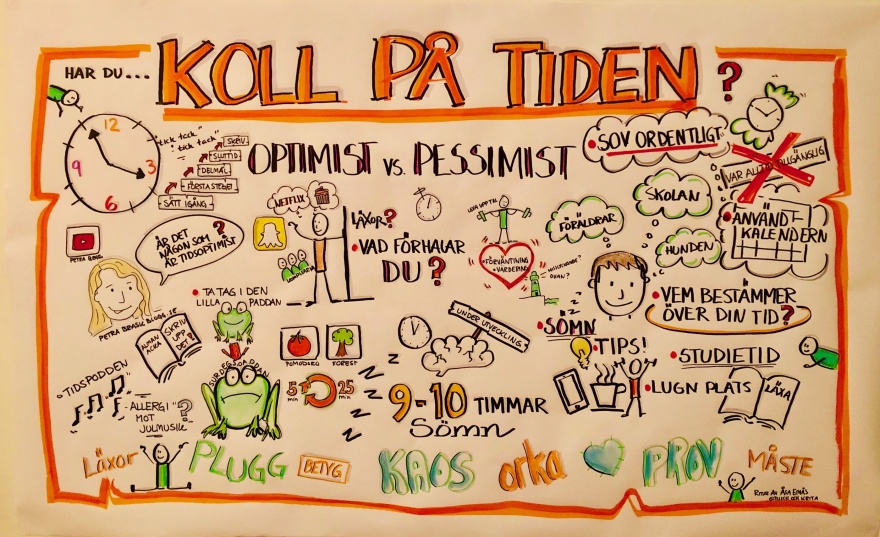 HAR DU...
KOLL PÅ TIDEN?
12
3
6
9
"tick tack"
"tick tack"
SKRIV
SLUTTID
DELMÅL
FÖRSTA STEGET
SÄTT IGÅNG
OPTIMIST VS. PESSIMIST
• SOV ORDENTLIGT
VAR ALLTID TILLGÄNGLIG
• ANVÄND
KALENDERN
ÄR DET
NÅGON SOM
ÄR TIDSOPTIMIST
?
NETFLIX
LÄXOR?
• VAD FÖRHALAR
DU?
LEVA UPP TILL
• FÖRVÄNTNING
• VÄRDERING
FÖRÄLDRAR
SKOLAN
HUNDEN
• VEM BESTÄMMER
ÖVER DIN TID?
• TA TAG I DEN
LILLA PADDAN
ALMAN
ACKA
SKRIV
UPP
DET?
POMODORO
FOREST
5 min
25 min
UNDER UTVECKLING
• SÖMN
• TIPS!
• STUDIETID
• LUGN PLATS
LÄXA
• TIDSPODDEN
- ALLERGI
MOT
JULMUSIK
?
9-10 TIMMAR
Sömn
Läxor
PLUGG
BETYG
KAOS
orka
PROV
MÅSTE